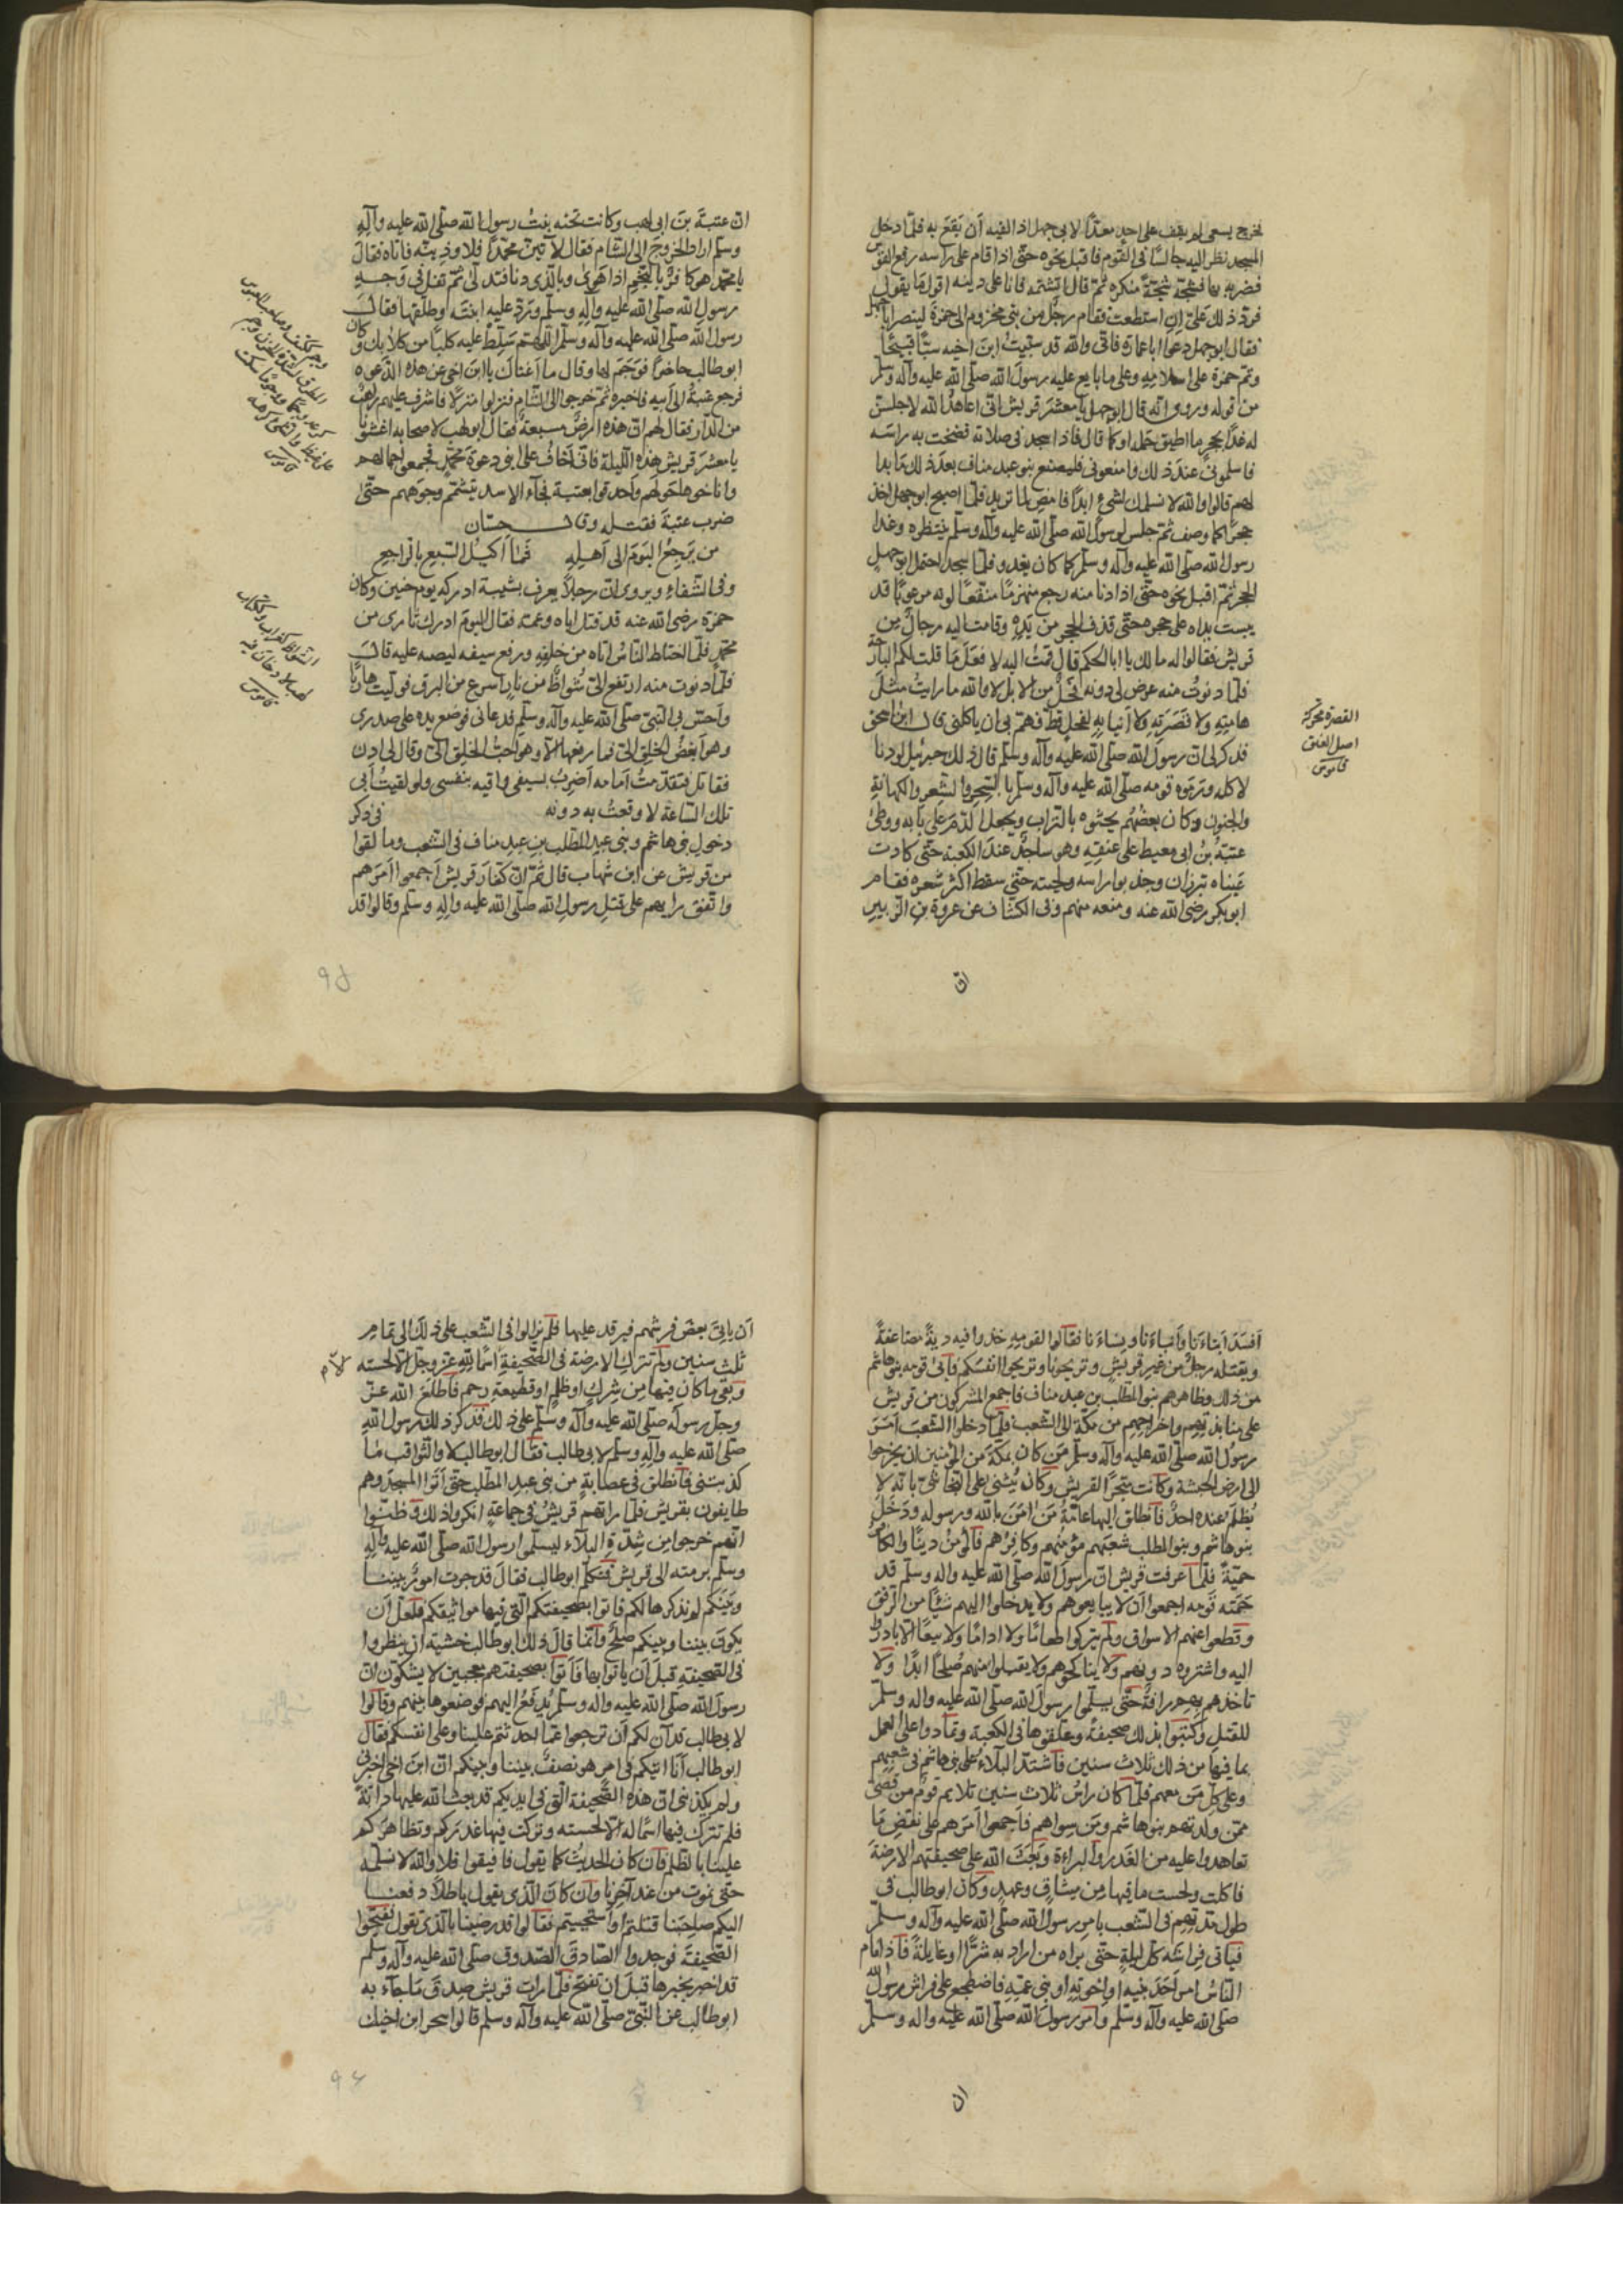 فخرج يسعى لم يقف على احدٍ معدًّا لابى جهل اذا لقيه أن يَقعَ به فلمّا دخل
المسجد نظر اليه جالسًا فى القوم فاقبل نحوه حتّى اذا قام على راسه رفع القوس
فضربه بها فشجّه شجّةً منكرة ثم قال اتشتمه فانا على دينه اقول مَا يقول
فردّ ذلك علىّ اِن استطعت فقام رجالٌ من بنى مخزوم الى حمزة لينصروا اباجهل
فقال ابو جهل دعوا اباعمارة فانّى والله قد سَبَبتُ ابنَ اخيه سبًّا قبيحًا
وتمّ حمزة على اسلامِهِ وعلى ما بايع عليه رسولَ الله صلّى الله عليه وآله وسلّم
من قوله وروى انّه قال ابو جهل يا معشرَ قريش انّى اعاهد الله لاجلسنّ
له غدًا بحجرٍ ما اطيق حمله او كما قال فاذا سجد فى صلاته فضخت به راسَه
فاسلمونى عند ذلك وامنعونى فليصنع بنو عبد مناف بعد ذلك مَا بدا
لهم قالوا والله لا نسلمك لشىءٍ ابدًا فامضِ لما تريد فلمّا اصبح ابو جهل اخذ
حجرًا كما وصف ثمّ جلس لرسول الله صلّى الله عليه وآله وسلّم ينتظره وغدا
رسول الله صلّى الله عليه وآله وسلّم كما كان يغدو فلمّا سجد احتمل ابو جهل
الحجر ثمّ اقبل نحوه حتّى اذا دنا منه رجع منهزمًا منتقعًا لونه مرعوبًا قد
يبست يداه على حجره حتّى قذف الحجر من يَدِهِ وقامت اليه رجالٌ مِن
قريش فقالوا له مالك يا ابا الحكم قال قمتُ اليه لافعلَ مَا قلت لكم البارحة
فلمّا دنوتُ منه عرض لى دونه فحلٌ من الابل لا والله ما رايتُ مثلَ
هامتِهِ ولا قَصَرَتِهِ ولا اَنيابِهِ لفحلٍ قطّ فهمّ بى ان ياكلنى قال ابن اسحق
فذكر لى انّ رسولَ الله صلّى الله عليه وآله وسلّم قال ذلك جبرئيل لو دنا
لاكله ورَمَوه قومه صلّى الله عليه وآله وسلّم بالسِّحرِ والشّعرِ والكهانةِ
والجنونِ وكان بعضُهُم يحثوه بالتراب ويجعل الدّمَ على بَابه ووطئ
عتبةُ بنُ ابى معيط على عنقِهِ وهو ساجدٌ عندَ الكعبة حتّى كادت
عَيناه تبرزان وجذبوا راسه ولحيته حتّى سقط اكثر شعره فقام
ابو بكر رضى الله عنه ومنعه منهم وفى الكشّاف عن عروة بن الزّبير
القصرة محركة
اصل العنق
قاموس
انّ
انّ عتبةَ بنَ ابى لهب وكانت تحته بنتُ رسول الله صلّى الله عليه وآله
وسلّم اراد الخروجَ الى الشّام فقال لآتينّ محمّدًا فلاوذينّه فاتاه فقال
يا محمّد هو كافرٌ بالنّجم اذا هَوى وبالّذى دنا فتدلّى ثم تفل فى وَجهِ
رسولِ الله صلّى الله عليه وآله وسلّم وردّ عليه ابنتَه وطلّقها فقال
رسول الله صلّى الله عليه وآله وسلّم اللّهمّ سَلِّطْ عليه كلبًا من كلابك وكان
ابو طالب حاضرًا فوَجَمَ لها وقال ما اَغناك يا ابنَ اخى عن هذه الدّعوه
فرجع عتبةُ الى اَبيهِ فاخبره ثمّ خرجوا الى الشام فنزلوا منزلًا فاشرف عليهم راهبٌ
من الدّيرِ فقال لهم انّ هذه ارضٌ مسبعةٌ فقال ابو لهب لاصحابه اغيثونا
يا معشر قريش هذه اللّيلة فانّى اَخافُ على ابنى دعوةَ محمّدٍ فجمعوا جمالهم
واناخوها حَولَهم واحدقوا بعتبة فجآء الاسد يتشمّم وجوَههم حتّى
ضرب عتبةَ فقتله وقال حسّان
من يَرجع اليَوم الى اَهلِهِ   فمَا اَكيلُ السّبع بالراجعِ
وفى الشفاءِ ويروى انّ رجلاً يعرف بشيبة ادركه يوم حنين وكان
حمزة رضى الله عنه قد قتل اباه وعمّه فقال اليومَ ادرك ثارى من
محمّدٍ فلمّا اختلط النّاسُ اتاه من خلفِهِ ورفع سيفه ليصبه عليه قال
فلمّا دنوت منه ارتفع الىّ شُواظٌ من نارٍ اسرع من البرق فولّيت هاربًا
واَحسّ بى النبىّ صلّى الله عليه وآله وسلّم فدعانى فوضع يده على صدرى
وهو اَبغضُ الخلقِ الىّ فما رفعها الاّ وهو احبُّ الخلق الىّ وقال لى ادن
فقاتل فتقدّمتُ اَمامه اَضرِبُ بسيفى واقيه بنفسى ولو لقيتُ اَبى
تلك السّاعةَ لاوقعتُ به دونه   فى ذكر
دخولِ بنى هاشم وبنى عبد المطّلب بن عبد مناف فى الشعب وما لقوا
من قريش عن ابن شهاب قال ثمّ انّ كفّارَ قريش اَجمعوا اَمرَهم
واتّفق رايهم على قتلِ رسولِ الله صلّى الله عليه وآله وسلّم وقالوا قد
الشواظ كغراب وكتاب
لهب لا دخان فيه
قاموس
اَفسَدَ اَبناءَنا ونِساءَنا فقالوا لقومِهِ خذوا فيه ديةً مضاعفةً
ويقتله رجلٌ من غيرِ قريشٍ وتريحونا وتريحوا انفسَكم فاَبى قومه بنو هاشم
من ذلك وظاهرهم بنو المطّلب بن عبد مناف فاجمع المشركون من قريش
على منابذتِهِم واخراجِهِم من مكّة الى الشّعب فلمّا دخلوا الشّعبَ اَمَرَ
رسولُ الله صلّى الله عليه وآله وسلّم مَن كان بمكّة من المؤمنين ان يخرجوا
الى ارض الحبشة وكانت متجرًا لقريش وكان يُثنى على النّجاشىّ بانّه لا
يُظلَم عنده احدٌ فانطلق اليها عامّةُ مَن اٰمن بالله ورسوله ودَخَلَ
بنو هاشم وبنو المطلب شعبَهم مؤمنُهم وكافِرُهم فالمؤمنُ دينًا والكافرُ
حميّةً فلمّا عرفت قريش انّ رسولَ الله صلّى الله عليه واله وسلّم قد
مَنَعَه قومه اجمعوا اَن لا يبايعوهم ولا يدخلوا اليهم شيئًا من الرّفق
وقطعوا عنهم الاسواق ولم يتركوا طعامًا ولا ادامًا ولا بيعًا الاّ بادروا
اليه واشتروه دونهم ولا يناكحوهم ولا يقبلوا منهم صُلحًا ابدًا ولا
تاخذهم بهم رافةٌ حتّى يسلّموا رسولَ الله صلّى الله عليه واله وسلّم
للقتلِ وكَتَبوا بذلك صحيفةً وعلّقوها فى الكعبة وتمادوا على العمل
بما فيها من ذلك ثلاث سنين فاشتدّ البلاءُ على بنى هاشم فى شعبهم
وعلى كلّ مَن معهم فلمّا كان راسُ ثلاث سنين تلاوم قومٌ من قصىّ
ممّن ولدتهم بنو هاشم ومَن سِواهم فاَجمعوا اَمرهم على نقضِ مَا
تعاهدوا عليه من الغَدر والبراءةِ وبَعَثَ الله على صحيفتِهم الارضةَ
فاكلت ولحست ما فيها مِن ميثاقٍ وعهدٍ وكان ابو طالب فى
طول مدّتِهم فى الشعب يامر رسولَ الله صلّى الله عليه وآله وسلّم
فياتى فِراشَه كلّ ليلةٍ حتّى يراه من اراد به شرًّا او غايلةً فاذا نام
النّاسُ امر اَحَدَ بنيه او اِخوتِهِ او بنى عمّهِ فاضطجع على فراش رسول الله
صلّى الله عليه وآله وسلّم وامر رسولَ الله صلّى الله عليه واله وسلّم
ان
اَن ياتىَ بعضَ فرشهم فيرقد عليها فلم يزالوا فى الشعب على ذلك الى تمامِ
ثلث سنين ولم تترك الارضة فى الصّحيفةِ اسمًا للهِ عزّ وجلّ الاّ لحسته
وبقى ما كان فيها مِن شِركٍ او ظلمٍ او قطيعةِ رحمٍ فاطلَعَ الله عزّ
وجلّ رسولَه صلّى الله عليه وآله وسلّم على ذلك فذكر ذلك رسول اللهِ
صلّى الله عليه وآلهِ وسلّم لابى طالب فقال ابو طالب لا والثّواقب مَا
كذبتنى فانطلق فى عصابةٍ من بنى عبد المطّلب حتّى اَتَوا المسجدَ وهم
خايفون بقريش فلمّا راتهم قريشُ فى جماعةٍ انكروا ذلك وظنّوا
انّهم خرجوا من شدّةِ البلآء ليسلّموا رسول الله صلّى الله عليه وآله
وسلّم برمته الى قريش فتكلّم ابو طالب فقال قد جرت امورٌ بيننا
وبَينَكم لم نذكرها لكم فاتوا بصحيفتكم الّتى فيها مواثيقكم فلعلّ اَن
يكونَ بيننا وبينكم صلحٌ وانّما قال ذلك ابو طالب خشيةَ ان ينظروا
فى الصّحيفةِ قبلَ اَن ياتوا بها فَاَتوا بصحيفتهم معجبين لا يشكّون انّ
رسولَ الله صلّى الله عليه واله وسلّم يُدفَعُ اليهم فوضعوها بينهم وقالوا
لابى طالب قد اٰن لكم اَن ترجعوا عمّا احدثتم علينا وعلى انفسكم فقال
ابو طالب اَنا اتيتكم فى امرٍ هو نَصَفٌ بيننا وبينكم انّ ابنَ اخى اخبرنى
ولم يكذبنى انّ هذه الصَّحيفة الّتى فى ايديكم قد بعث الله عليها دابّةً
فلم تترك فيها اسمًا له الاّ لحسته وتركت فيها غدرَكم وتظاهرَكم
علينا بالظّلم فاِن كان الحديثُ كما يقول فافيقوا فلا والله لا نسلّمه
حتّى نموتَ من عند آخِرِنا وان كانَ الّذى يقول باطلاً دفعنا
اليكم صاحِبَنا قتلتم او استحييتم فقالوا قد رضينا بالّذى تقول ففتحوا
الصّحيفةَ فوجدوا الصّادقَ الصّدوق صلّى الله عليه وآله وسلّم
قد اخبر بخبرها قبلَ ان تفتح فلمّا رات قريش صدقَ مَا جآء به
ابو طالب عن النّبىّ صلّى الله عليه وآله وسلّم قالوا سحر ابن اخيك